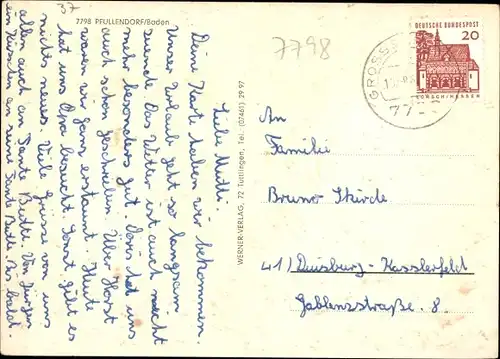 37
7798 PFULLENDORF/Baden
7798
DEUTSCHE BUNDESPOST
20
LORSCH/HESSEN
GROSS
Liebe Mutti
Deine Karte haben wir bekommen.
Unser Urlaub geht so langsam
zuende. Das Wetter ist auch nicht
mehr besonders gut. Doris hat uns
auch schon geschrieben. Über Horst
waren wir ganz erstaunt. Heute
hat uns Opa besucht. Sonst gibt es
nichts neues. Viele Grüsse von uns
allen auch an Tante Butte. Von Jürgen
ein Küsschen an seine Tante Butte. Bis bald
WERNER-VERLAG, 72 Tuttlingen, Tel.: (07461) 29 97
An
Familie
Bruno
41) Duisburg-Kasslerfeld
Gablenzstraße 8